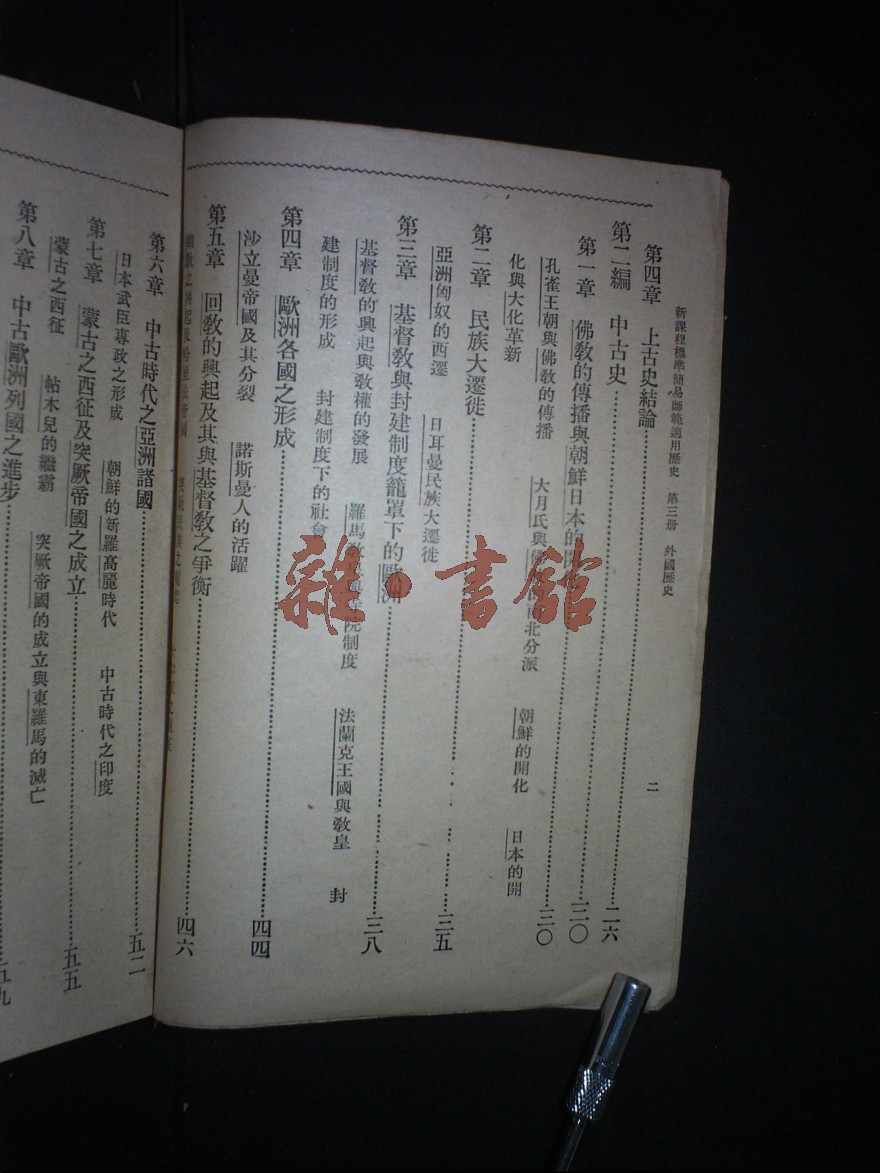 新課程標準簡易師範適用歷史 第三册 外國歷史 二
第四章 上古史結論 二六
第二編 中古史 三〇
第一章 佛教的傳播與朝鮮日本的開 三〇
孔雀王朝與佛教的傳播 大月氏與 南北分派 朝鮮的開化 日本的開
化與大化革新
第二章 民族大遷徙 三五
亞洲匈奴的西遷 日耳曼民族大遷徙
第三章 基督教與封建制度籠罩下的歐洲 三八
基督敎的興起與敎權的發展 羅馬敎 院制度 法蘭克王國與敎皇 封
建制度的形成 封建制度下的社會
第四章 歐洲各國之形成 四四
沙立曼帝國及其分裂 諾斯曼人的活躍
第五章 回敎的興起及其與基督敎之爭衡 四六
第六章 中古時代之亞洲諸國 五二
日本武臣專政之形成 朝鮮的新羅高麗時代 中古時代之印度
第七章 蒙古之西征及突厥帝國之成立 五五
蒙古之西征 帖木兒的繼霸 突厥帝國的成立與東羅馬的滅亡
第八章 中古歐洲列國之進步 五九
雜·書館